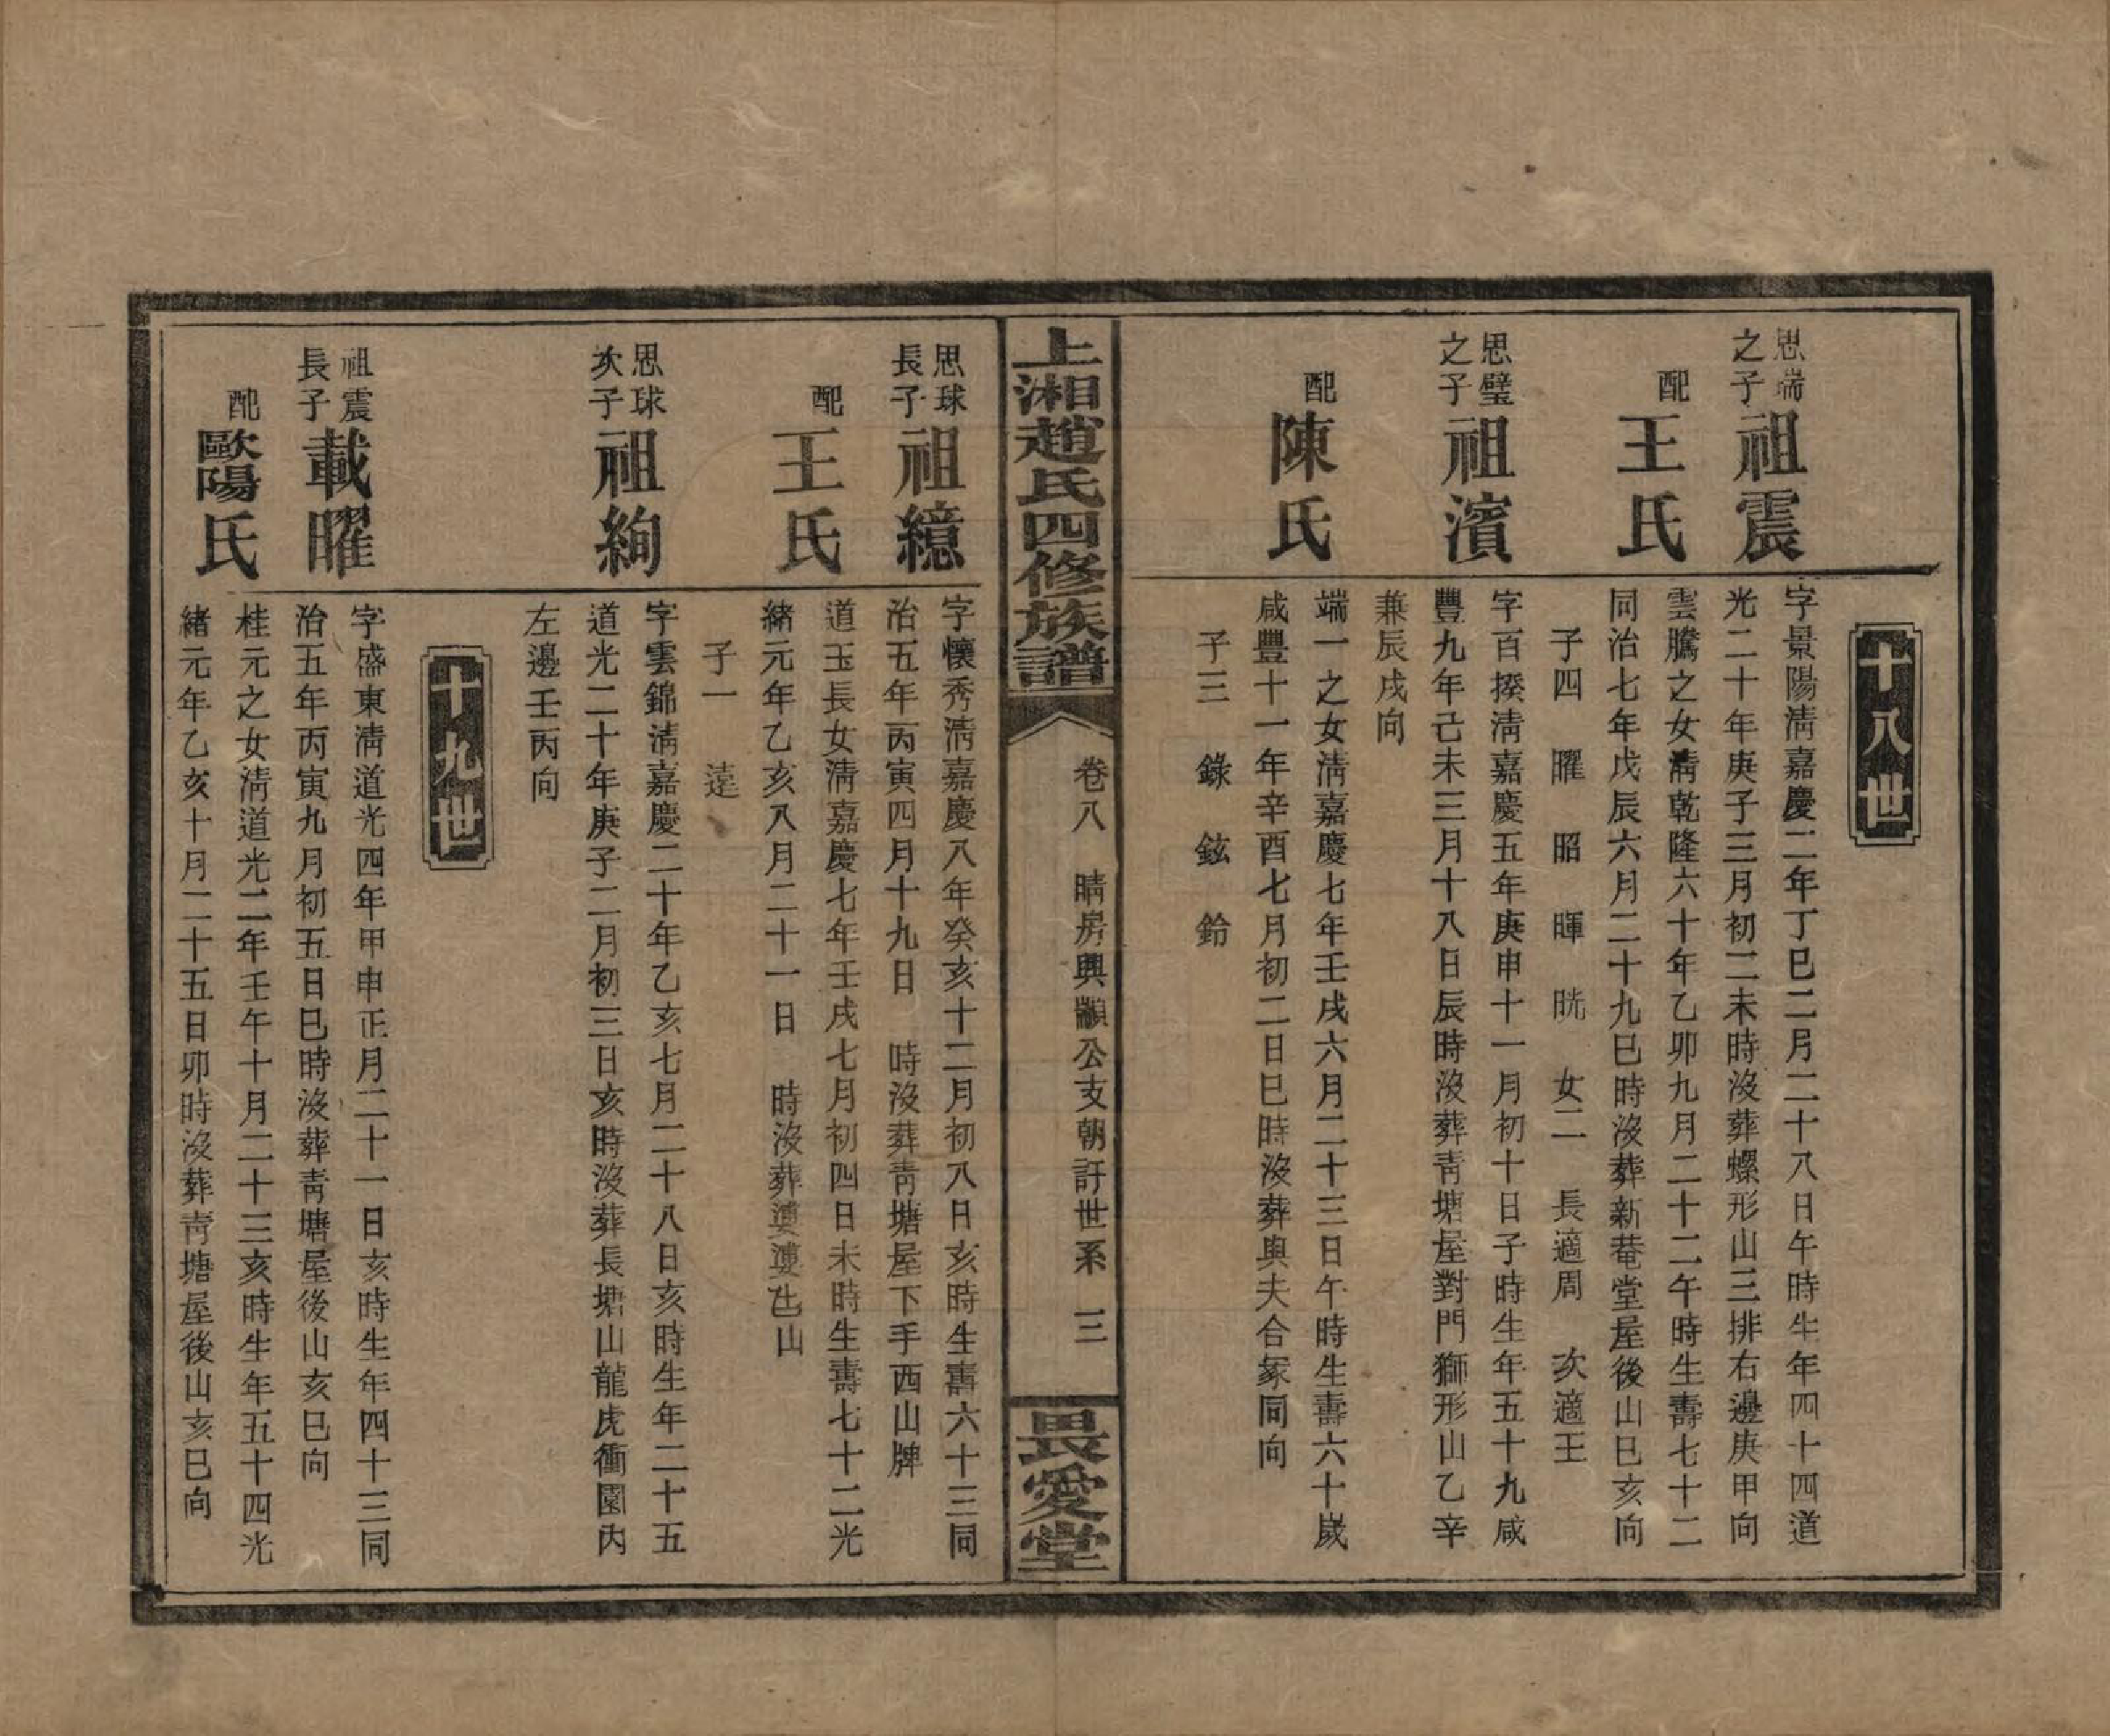 十八世
思端之子
祖震
字景陽淸嘉慶二年丁巳二月二十八日午時生年四十四道
光二十年庚子三月初二未時沒葬螺形山三排右邊庚甲向
配王氏
雲騰之女淸乾隆六十年乙卯九月二十二午時生壽七十二
同治七年戊辰六月二十九巳時沒葬新菴堂屋後山巳亥向
子四 曜 昭 暉 晄 女二 長適周 次適王
思璧之子
祖濱
字百揆淸嘉慶五年庚申十一月初十日子時生年五十九咸
豐九年己未三月十八日辰時沒葬靑塘屋對門獅形山乙辛
兼辰戌向
配陳氏
端一之女淸嘉慶七年壬戌六月二十三日午時生壽六十歲
咸豐十一年辛酉七月初二日巳時沒葬與夫合冢同向
子三 錄 鉉 鈴
上湘趙氏四修族譜
卷八 晴房興顯公支朝許世系 三
畏愛堂
思球長子
祖繶
字懷秀淸嘉慶八年癸亥十二月初八日亥時生壽六十三同
治五年丙寅四月十九日 時沒葬靑塘屋下手西山牌
配王氏
道玉長女淸嘉慶七年壬戌七月初四日未時生壽七十二光
緒元年乙亥八月二十一日 時沒葬山
子一 達
思球次子
祖絢
字雲錦淸嘉慶二十年乙亥七月二十八日亥時生年二十五
道光二十年庚子二月初三日亥時沒葬長塘山龍虎衝園內
左邊壬丙向
十九世
祖震長子
載曜
字盛東淸道光四年甲申正月二十一日亥時生年四十三同
治五年丙寅九月初五日巳時沒葬靑塘屋後山亥巳向
配歐陽氏
桂元之女淸道光二年壬午十月二十三亥時生年五十四光
緒元年乙亥十月二十五日卯時沒葬靑塘屋後山亥巳向